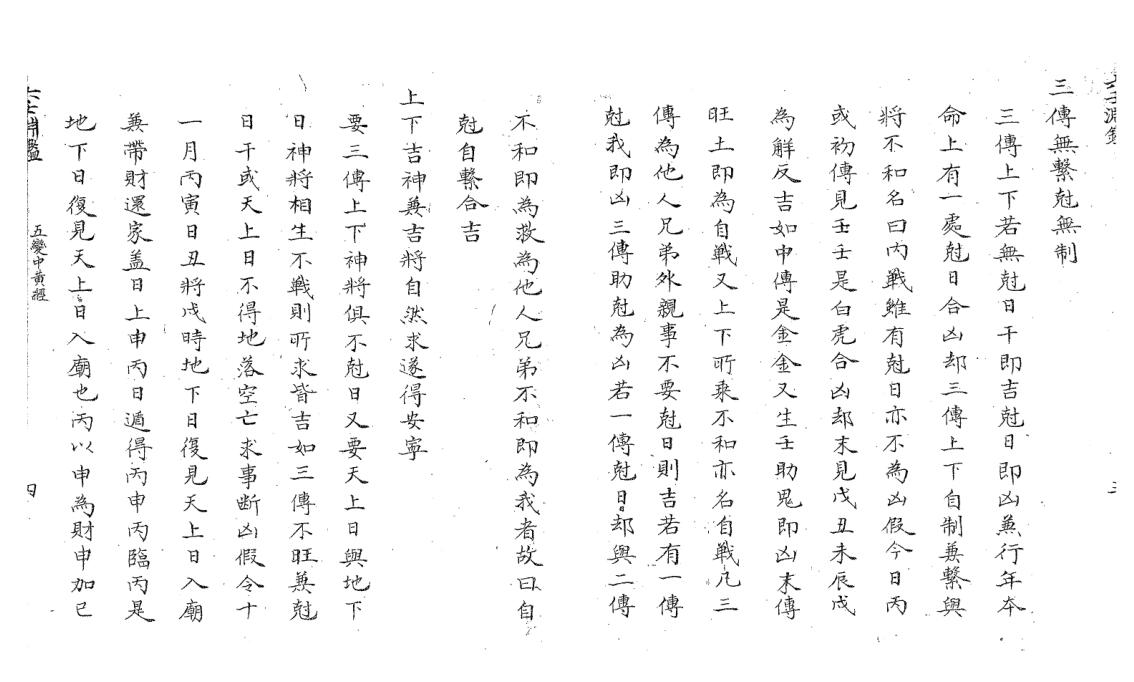 三傳無繫尅無制
三傳上下若無尅日干即吉尅日即凶兼行年本
命上有一處尅日合凶却三傳上下自制兼繫與
將不和名曰内戰雖有尅日亦不為凶假令日丙
或初傳見壬壬是白虎合凶却末見戊丑未辰戌
為解反吉如申傳是金金又生壬助鬼即凶末傳
旺土即為自戰又上下所乘不和亦名自戰凡三
傳為他人兄弟外親事不要尅日則吉若有一傳
尅我即凶三傳助尅為凶若一傳尅日却與二傳
不和即為救為他人兄弟不和即為我者故曰自
尅自繫合吉
上下吉神兼吉將自然求遂得安寧
要三傳上下神將俱不尅日又要天上日與地下
日神將相生不戰則所求皆吉如三傳不旺兼尅
日干或天上日不得地落空亡求事断凶假令十
一月丙寅日丑將戌時地下日復見天上日入廟
兼帶財還家盖日上申丙日遁得丙申丙臨丙是
地下日復見天上日入廟也丙以申為財申加巳
五變中黄經
四